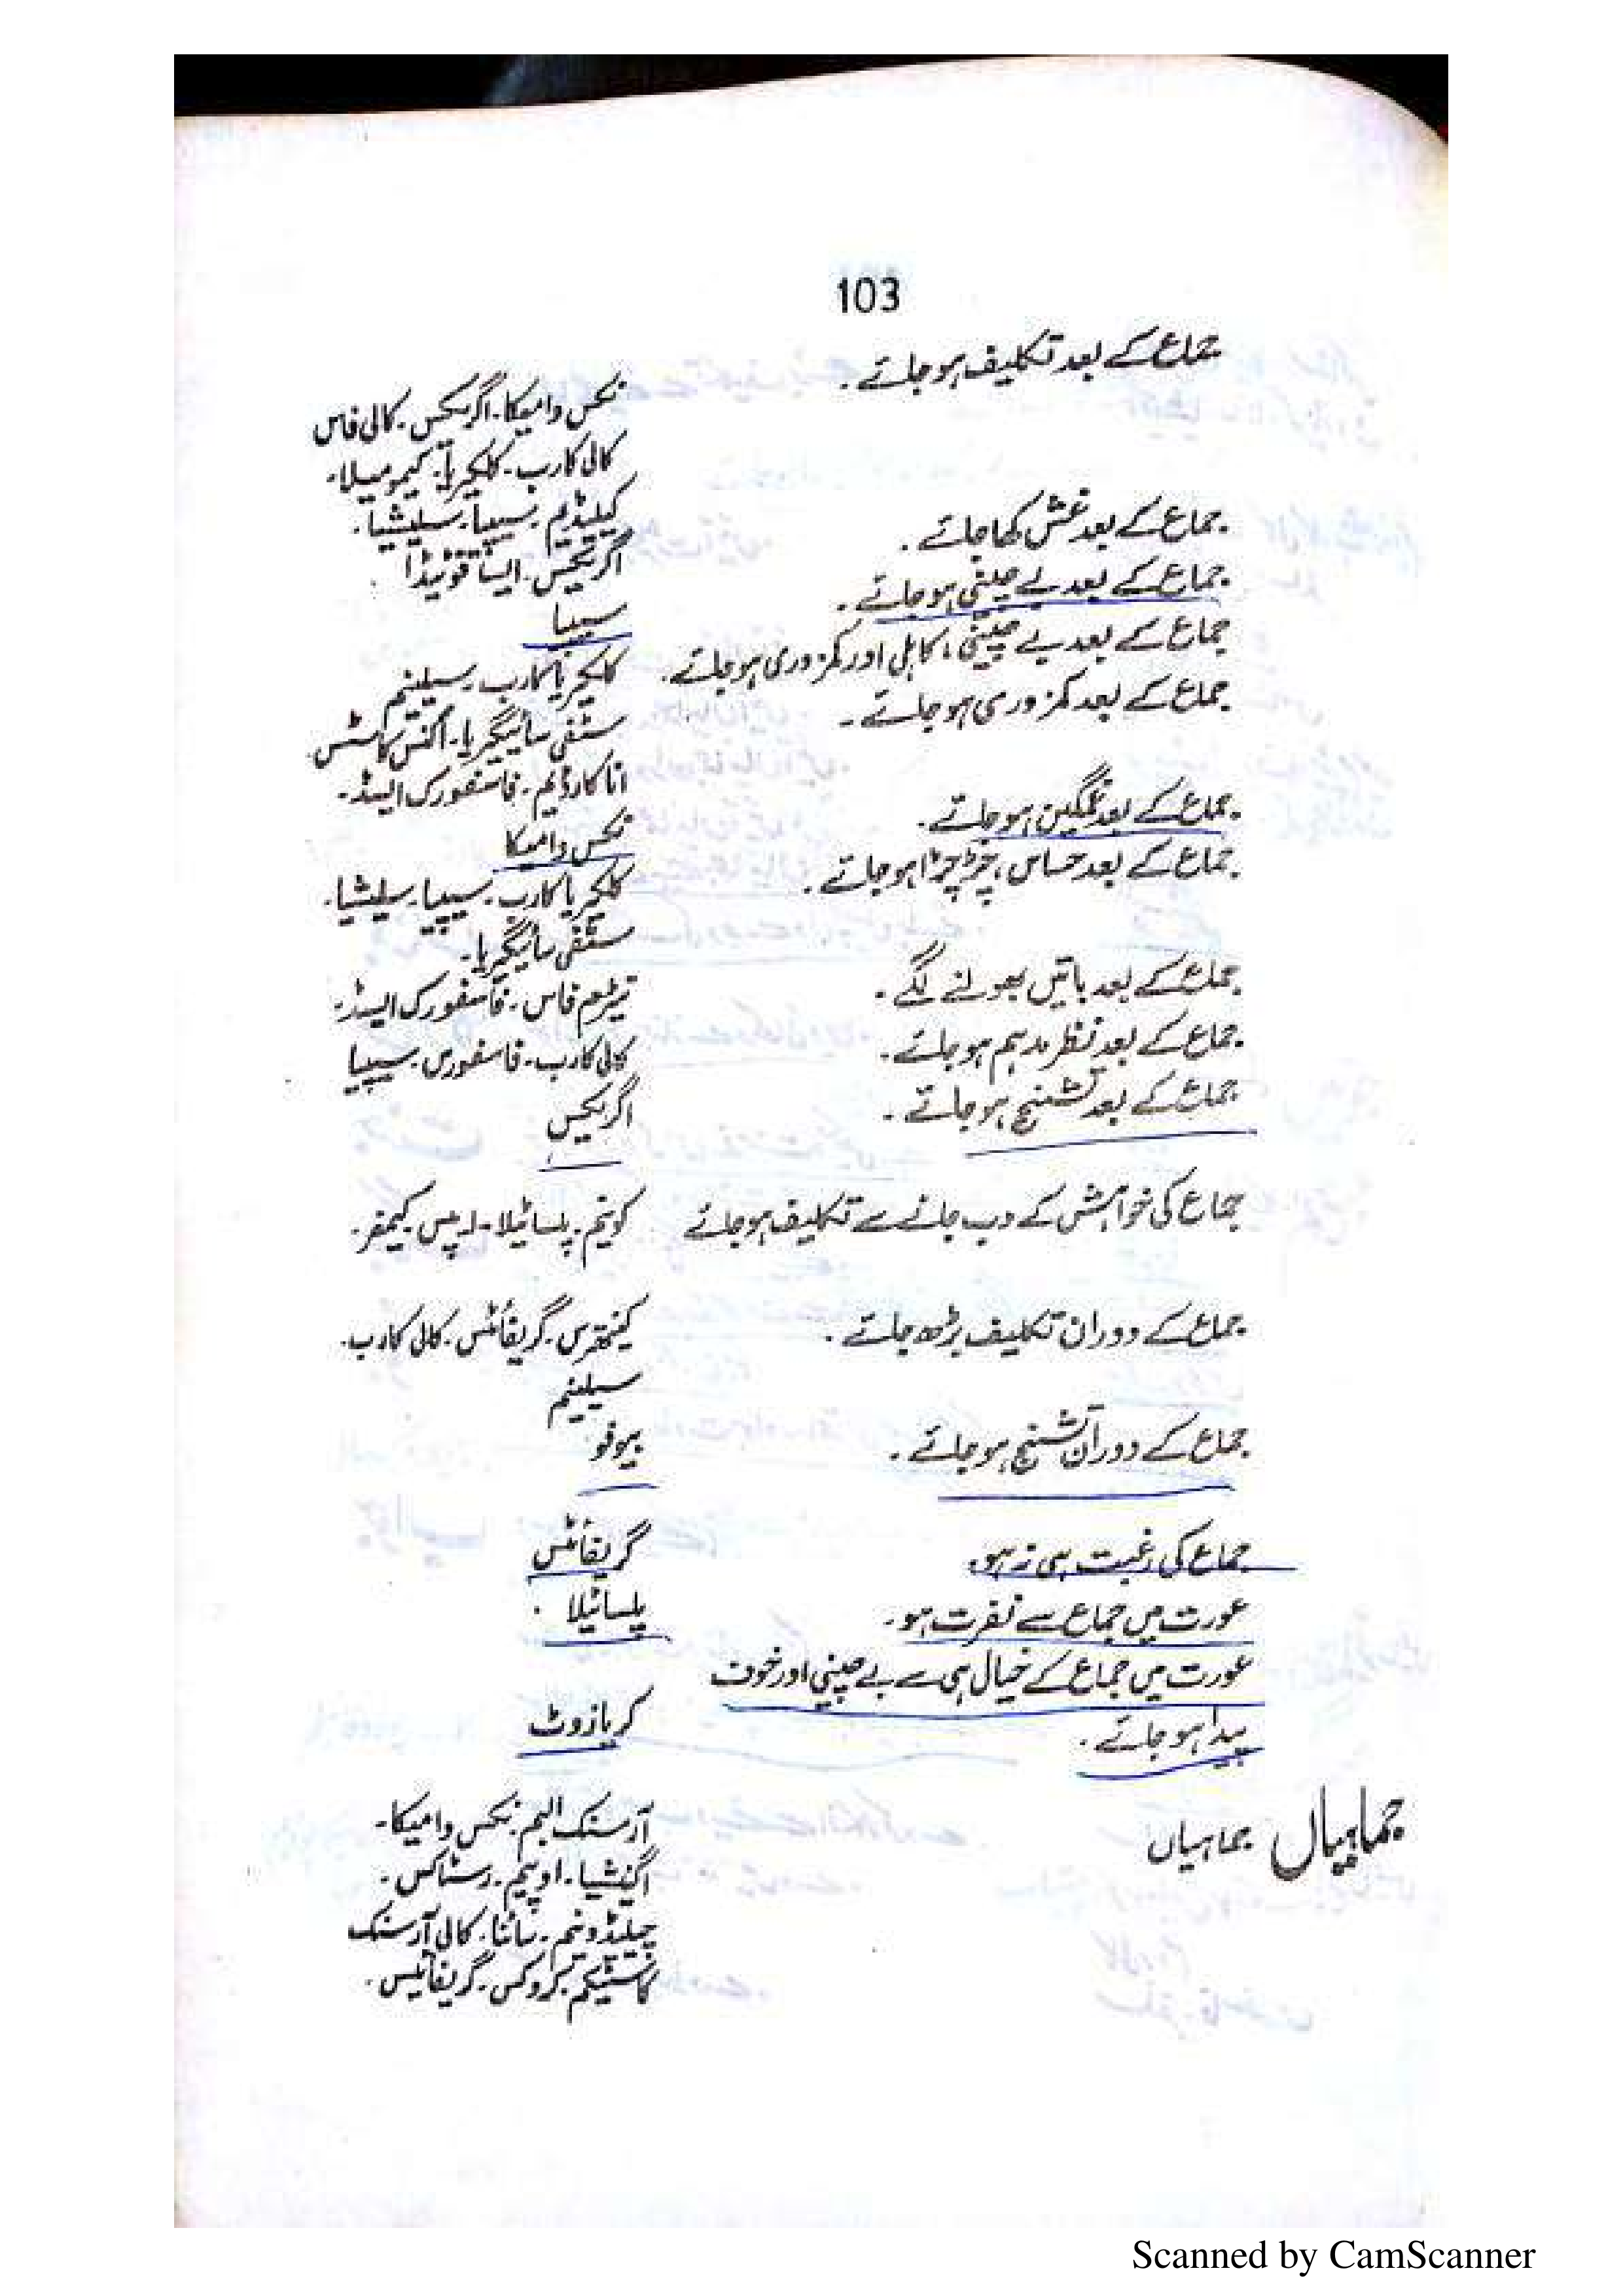 103
جماع کے بعد تکلیف ہو جائے۔
نکس وامیکا۔ اگریکس۔ کالی فاس
کالی کارب۔ کلکیریا۔ کیمومیلا۔
کیلیڈیم۔ سیپیا۔ سلیشیا۔
جماع کے بعد غش کھا جائے۔
اگریکس۔ ایسافوٹیڈا
جماع کے بعد بے چینی ہو جائے۔
سیپیا
جماع کے بعد بے چینی، کاہلی اور کمزوری ہو جائے۔
کلکیریا کارب۔ سیلینیم
جماع کے بعد کمزوری ہو جائے۔
سٹفی سائیگیریا۔ اگنس کاسٹس۔
اناکارڈیم۔ فاسفورک ایسڈ۔
جماع کے بعد غمگین ہو جائے۔
نکس وامیکا
جماع کے بعد حساس، چڑچڑا ہو جائے۔
کلکیریا کارب۔ سیپیا۔ سلیشیا۔
سٹفی سائیگیریا۔
جماع کے بعد باتیں بھولنے لگے۔
نیٹرم فاس۔ فاسفورک ایسڈ۔
جماع کے بعد نظر مدہم ہو جائے۔
کالی کارب۔ فاسفورس۔ سیپیا
جماع کے بعد تشنج ہو جائے۔
اگریکس
جماع کی خواہش کے دب جانے سے تکلیف ہو جائے
کونیم۔ پلساٹیلا۔ اپس۔ کیمفر۔
جماع کے دوران تکلیف بڑھ جائے۔
کینتھرس۔ گریفائٹس۔ کالی کارب۔
سیلینیم
جماع کے دوران تشنج ہو جائے۔
بیوفو
جماع کی رغبت ہی نہ ہو۔
گریفائٹس
عورت میں جماع سے نفرت ہو۔
پلساٹیلا۔
عورت میں جماع کے خیال ہی سے بے چینی اور خوف
پیدا ہو جائے۔
کریازوٹ
جماہیاں جماہیاں
آرسنک البم۔ نکس وامیکا۔
اگنیشیا۔ اوپیم۔ رسٹاکس۔
چیلیڈونیم۔ سائنا۔ کالی آرسنک
کاسٹیکم۔ کروکس۔ گریفائٹس۔
Scanned by CamScanner